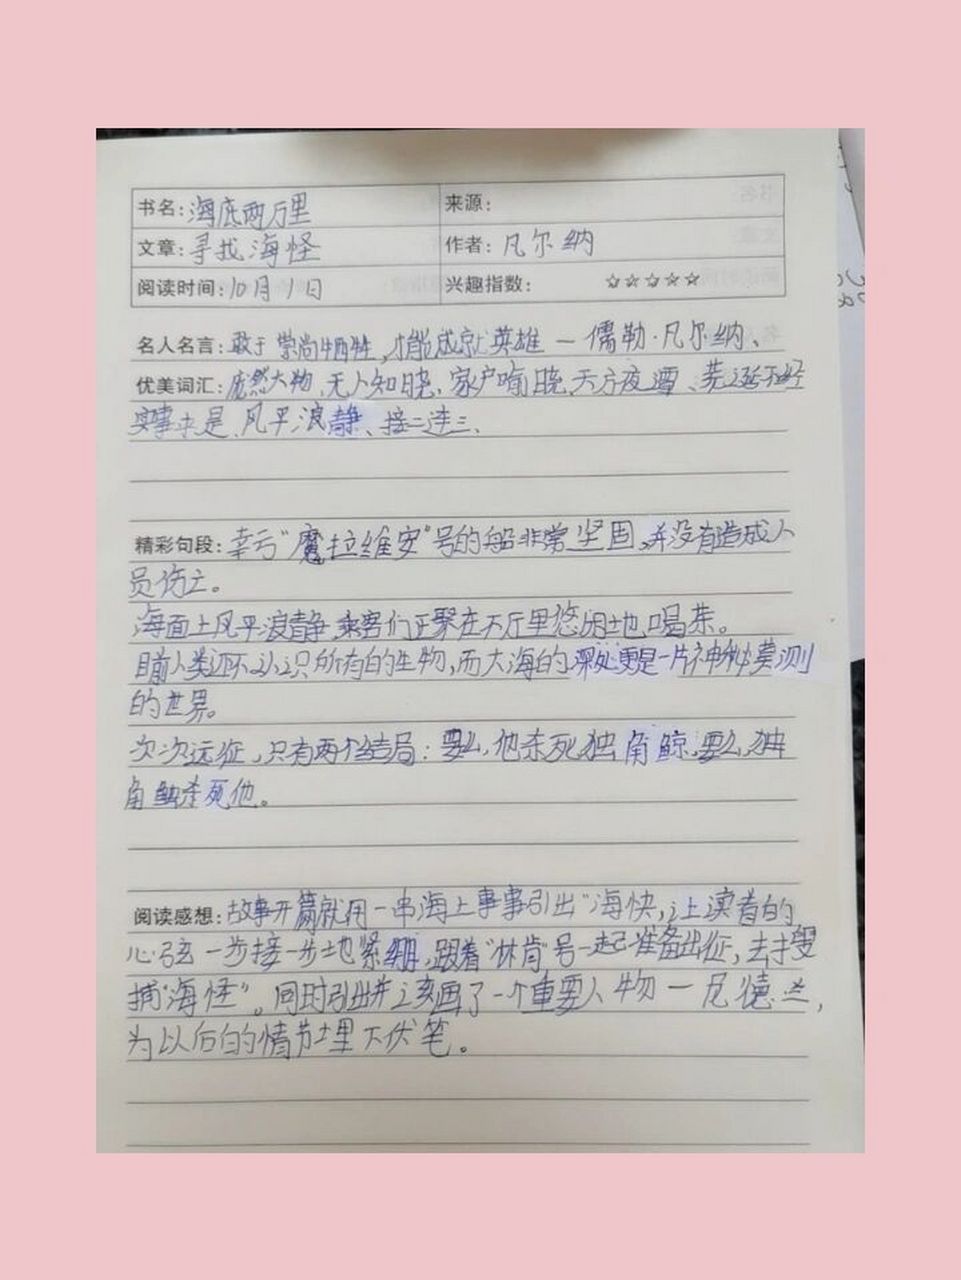 书名：海底两万里 来源：
文章：寻找海怪 作者：凡尔纳
阅读时间：10月1日 兴趣指数： ☆☆☆☆☆
名人名言：敢于崇尚牺牲，才能成就英雄一儒勒·凡尔纳、
优美词汇：庞然大物、无人知晓、家户喻晓、天方夜谭、荒诞不经
实事求是、风平浪静、接二连三、
精彩句段：幸亏“魔拉维安”号的船非常坚固，并没有造成人
员伤亡。
海面上风平浪静，乘客们正聚在大厅里悠闲地喝茶。
目前人类还不认识所有的生物，而大海的深处更是一片神秘莫测
的世界。
次次远征，只有两个结局：要么，他杀死独角鲸，要么，独
角鲸杀死他。
阅读感想：故事开篇就用一串海上事事引出“海快，让读者的
心弦一步接一步地紧绷，跟着“林肯”号一起准备出征，去搜
捕“海怪”。同时引出并刻画了一个重要人物一尼德兰，
为以后的情节埋下伏笔。